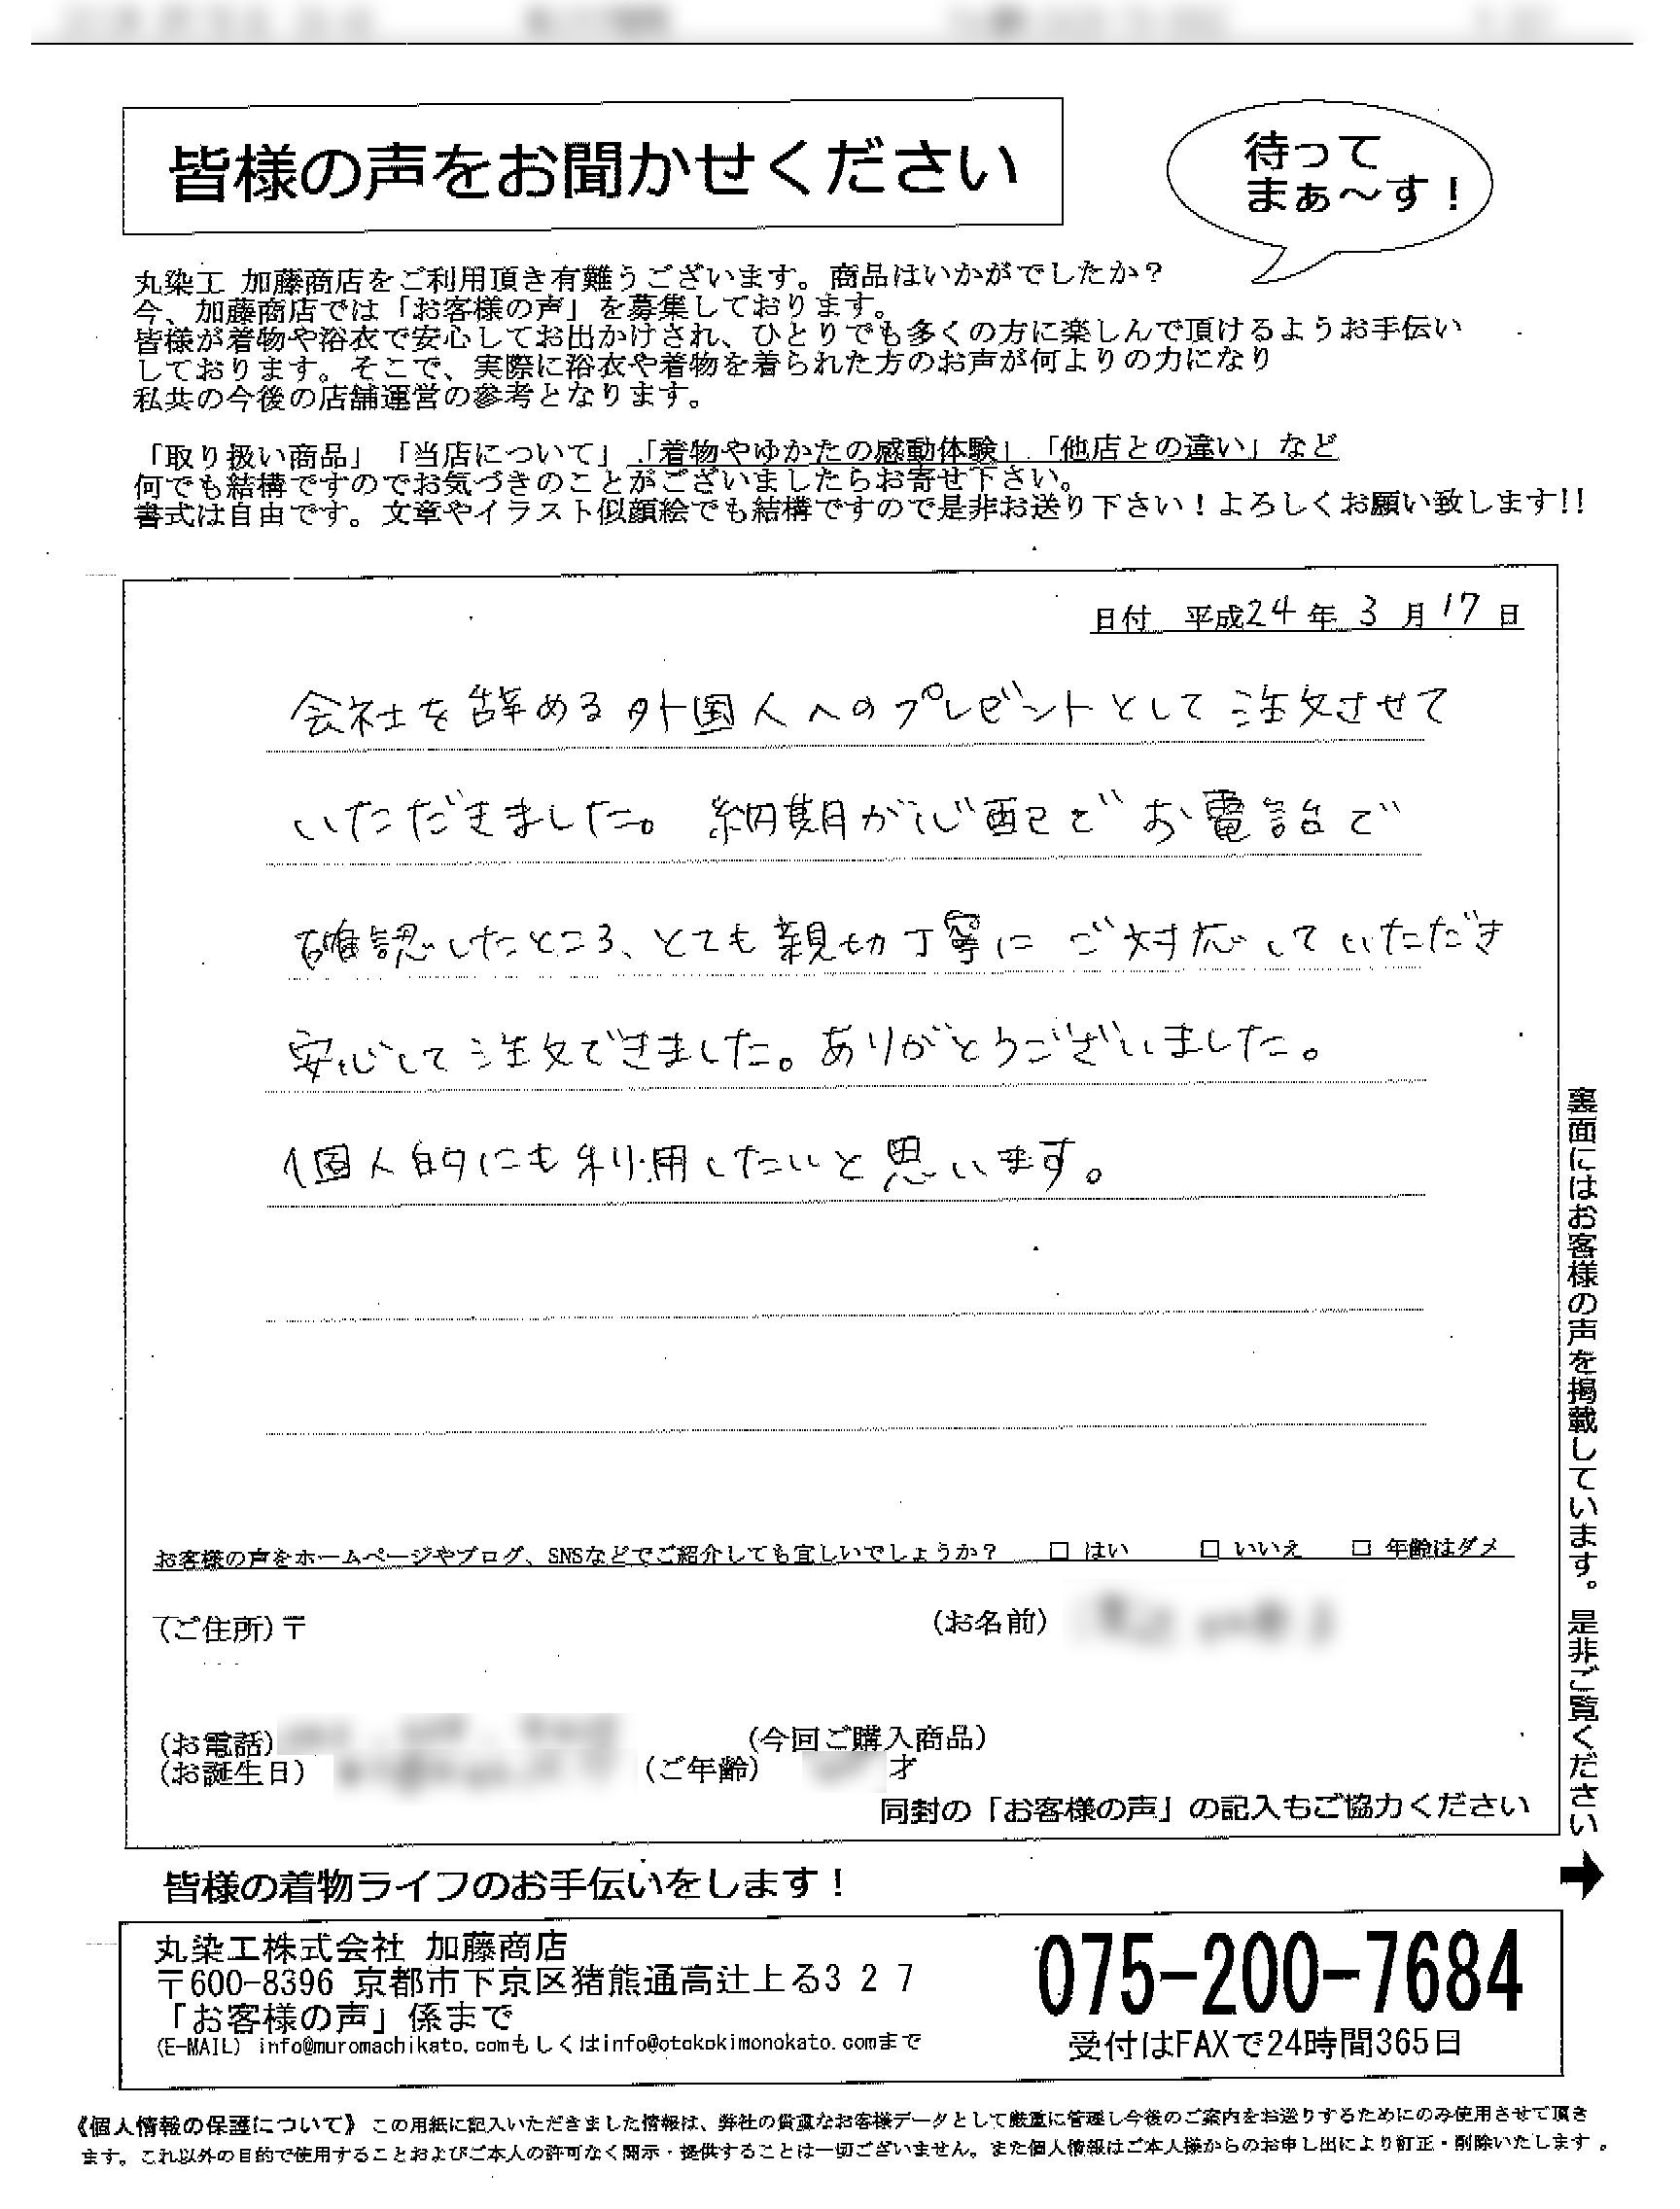 皆様の声をお聞かせください
待って
まぁ～す！
丸染工 加藤商店をご利用頂き有難うございます。商品はいかがでしたか？
今、加藤商店では「お客様の声」を募集しております。
皆様が着物や浴衣で安心してお出かけされ、ひとりでも多くの方に楽しんで頂けるようお手伝い
しております。そこで、実際に浴衣や着物を着られた方のお声が何よりの力になり
私共の今後の店舗運営の参考となります。
「取り扱い商品」「当店について」「着物やゆかたの感動体験」「他店との違い」など
何でも結構ですのでお気づきのことがございましたらお寄せ下さい。
書式は自由です。文章やイラスト似顔絵でも結構ですので是非お送り下さい！よろしくお願い致します!!
日付 平成24年 3月 17日
会社を辞める外国人へのプレゼントとして注文させて
いただきました。納期が心配でお電話で
確認したところ、とても親切丁寧にご対応していただき
安心して注文できました。ありがとうございました。
個人的にも利用したいと思います。
お客様の声をホームページやブログ、SNSなどでご紹介しても宜しいでしょうか？ □ はい □ いいえ □ 年齢はダメ
(ご住所)〒
(お名前)
(お電話)
(今回ご購入商品)
(お誕生日)
(ご年齢) 才
同封の「お客様の声」の記入もご協力ください
裏面にはお客様の声を掲載しています。是非ご覧ください
➡
皆様の着物ライフのお手伝いをします！
丸染工株式会社 加藤商店
〒600-8396 京都市下京区猪熊通高辻上る327
「お客様の声」係まで
(E-MAIL) info@muromachikato.comもしくはinfo@otokokimonokato.comまで
075-200-7684
受付はFAXで24時間365日
《個人情報の保護について》この用紙に記入いただきました情報は、弊社の貴重なお客様データとして厳重に管理し今後のご案内をお送りするためにのみ使用させて頂き
ます。これ以外の目的で使用することおよびご本人の許可なく開示・提供することは一切ございません。また個人情報はご本人様からのお申し出により訂正・削除いたします。